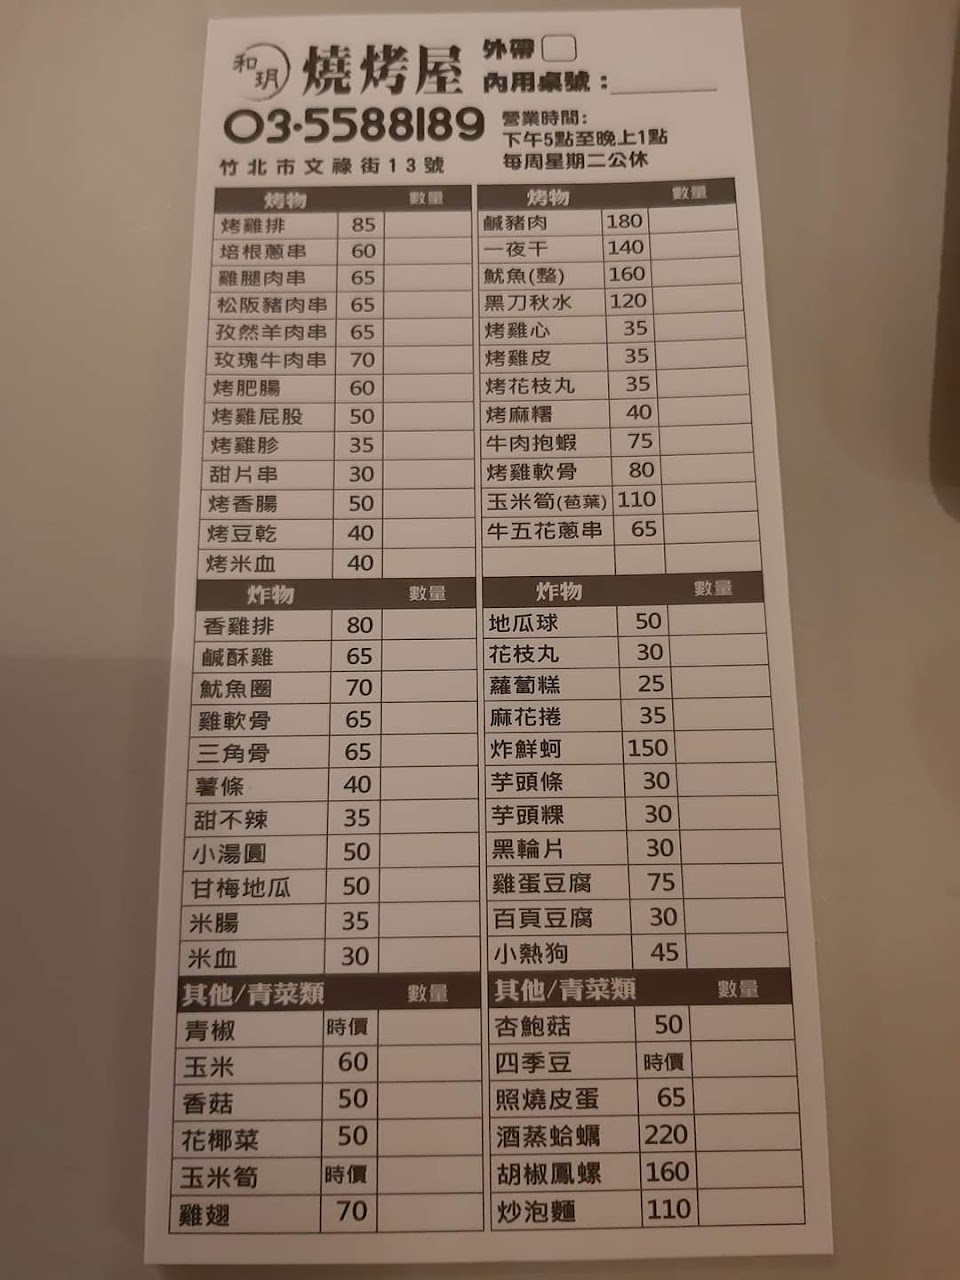 和玥 燒烤屋 外帶
內用桌號：
03-5588189
竹北市文祿街13號
營業時間:
下午5點至晚上1點
每周星期二公休
烤物 數量
烤雞排 85
培根蔥串 60
雞腿肉串 65
松阪豬肉串 65
孜然羊肉串 65
玫瑰牛肉串 70
烤肥腸 60
烤雞屁股 50
烤雞胗 35
甜片串 30
烤香腸 50
烤豆乾 40
烤米血 40
烤物 數量
鹹豬肉 180
一夜干 140
魷魚(整) 160
黑刀秋水 120
烤雞心 35
烤雞皮 35
烤花枝丸 35
烤麻糬 40
牛肉抱蝦 75
烤雞軟骨 80
玉米筍(苞葉) 110
牛五花蔥串 65
炸物 數量
香雞排 80
鹹酥雞 65
魷魚圈 70
雞軟骨 65
三角骨 65
薯條 40
甜不辣 35
小湯圓 50
甘梅地瓜 50
米腸 35
米血 30
炸物 數量
地瓜球 50
花枝丸 30
蘿蔔糕 25
麻花捲 35
炸鮮蚵 150
芋頭條 30
芋頭粿 30
黑輪片 30
雞蛋豆腐 75
百頁豆腐 30
小熱狗 45
其他/青菜類 數量
青椒 時價
玉米 60
香菇 50
花椰菜 50
玉米筍 時價
雞翅 70
其他/青菜類 數量
杏鮑菇 50
四季豆 時價
照燒皮蛋 65
酒蒸蛤蠣 220
胡椒鳳螺 160
炒泡麵 110